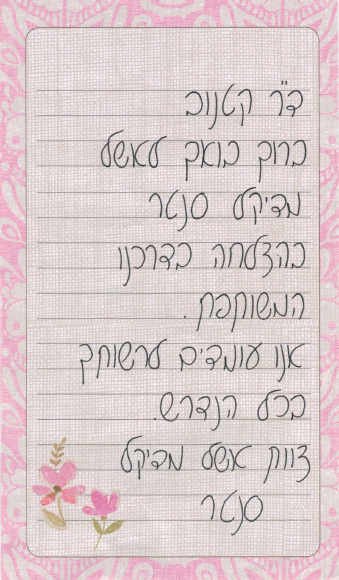 ד"ר קטנוב
ברוך בואך לאשל
מדיקל סנטר
בהצלחה בדרכנו
המשותפת.
אנו עומדים לרשותך
בכל הנדרש.
צוות אשל מדיקל
סנטר